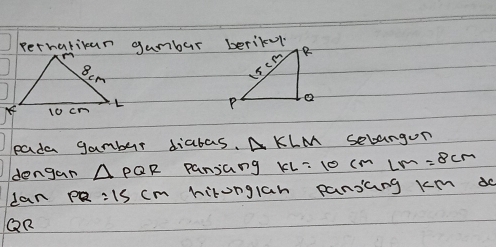 Perhatikan gambar berikut.
M
R
8cm
15 cm
K
L
P
Q
10 cm
pada gambar diatas. Δ KLM sebangun
dengan Δ PQR Panjang KL = 10 cm LM = 8cm
dan PR = 15 cm hitunglah panjang KM
QR